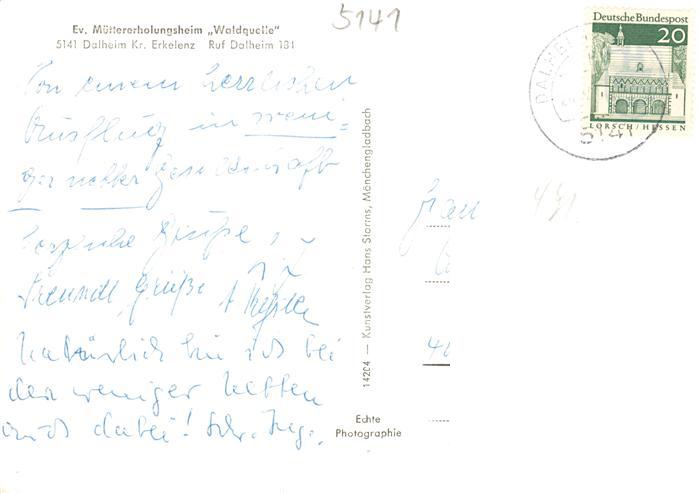 5141
Ev. Müttererholungsheim „Waldquelle"
5141 Dalheim Kr. Erkelenz Ruf Dalheim 181
Von einem herrlichen
Ausflug in weni-
ger netter Gesellschaft
herzliche Grüße,
Freundl. Grüße
Natürlich bin ich bei
der weniger netten
auch dabei!
14204 — Kunstverlag Hans Storms, Mönchengladbach
Echte
Photographie
Deutsche Bundespost
20
LORSCH/HESSEN
DALHEI
5141
Frau